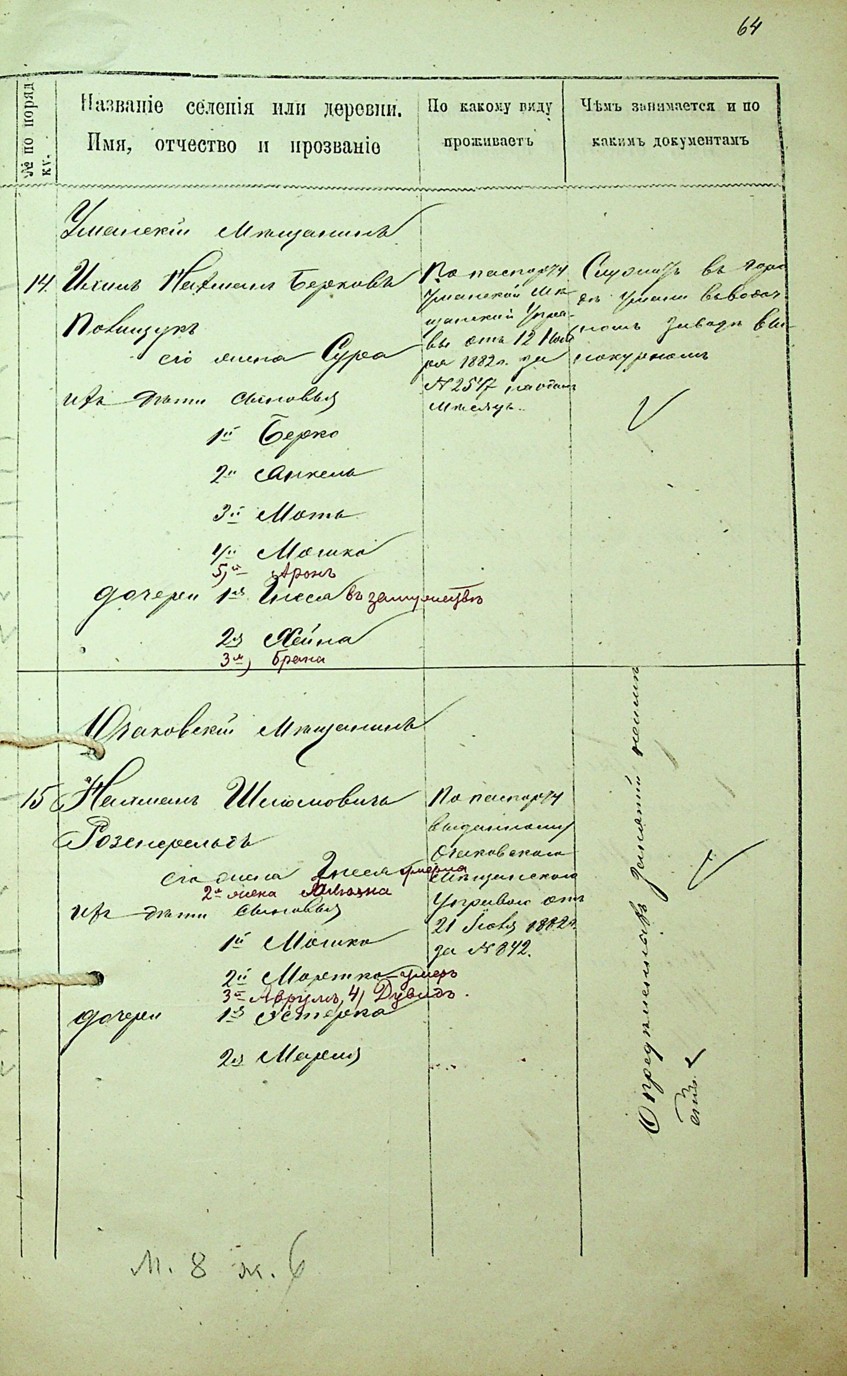 64
№ по поряд
ку.
Названіе селенія или деревни.
Имя, отчество и прозваніе
По какому виду
проживаетъ
Чѣмъ занимается и по
какимъ документамъ
Уманскій Мѣщанинъ
14. Ихиль Нахманъ Берковъ
его жена Сура
ихъ дѣти сыновья
1й Берко
2й Анкель
3й Моть
4й Мошко
5й Аронъ
дочери 1я Инся въ замужествѣ
2я Хейна
3я, Брана
По паспорту
Уманской Мѣ-
щанской Упра-
вы отъ 12 Ноя
ря 1882 г. за
№ 2547 на одинъ
мѣсяцъ.
Служитъ въ горо
дѣ Умани въ водоч-
номъ заводѣ ви-
нокурномъ
Мѣщанинъ
15 Нахманъ Шлiомовичъ
Розенфельдъ
его жена Энся умерла
2я жена
ихъ дѣти сыновья
1й Мошко
2й умеръ
3й Аврумъ, 4, Дувидъ.
дочери 1я Эстерка
2я Мария
По паспорту
выданному
Очаковскаго
Мѣщанского
Управою отъ
21 Іюля 1882 г.
за № 842.
Опредѣленныхъ занятій неимѣ
етъ
М. 8 ж. 6